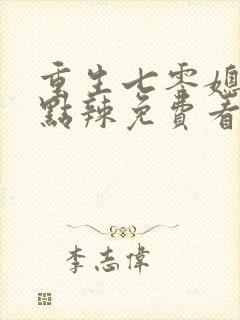 重生七零媳
點辣免費看
李志偉